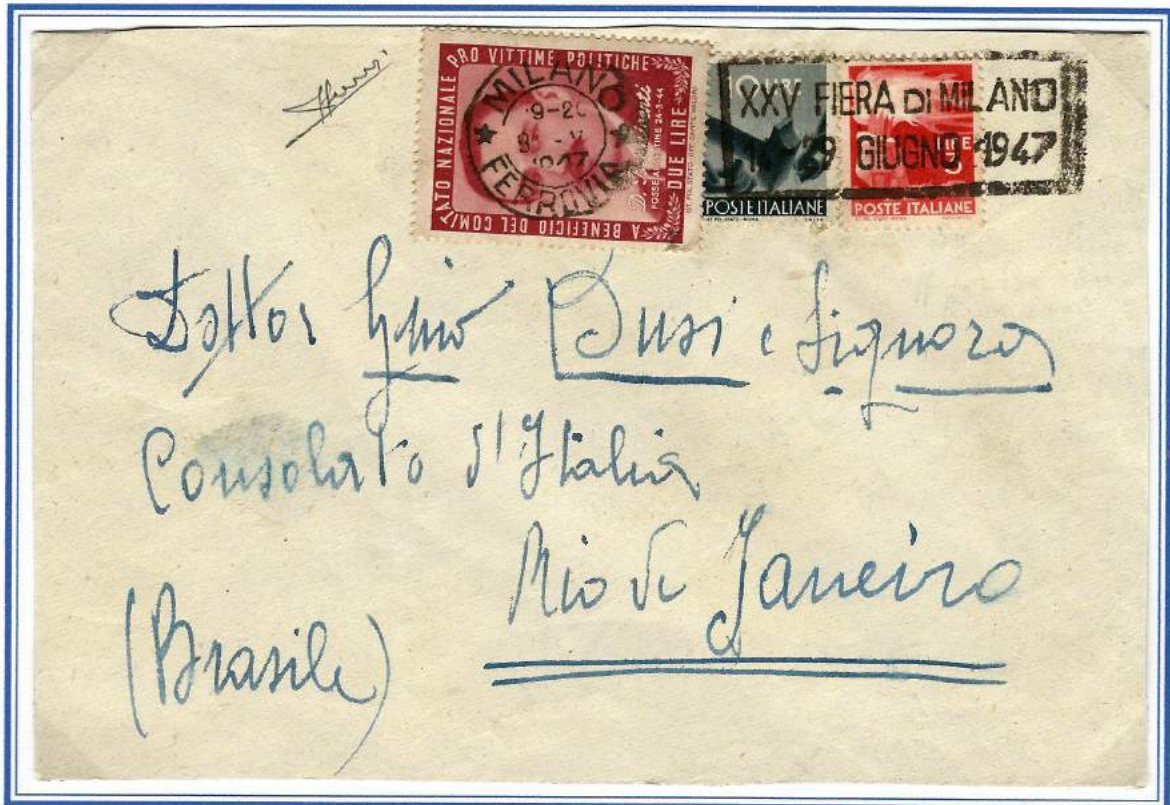 A BENEFICIO DEL COMITATO NAZIONALE PRO VITTIME POLITICHE
DUE LIRE
FOSSE ARDEATINE 24-3-44
MILANO
1947
FERROVIA
10 LIRE
POSTE ITALIANE
LIRE
POSTE ITALIANE
XXV FIERA DI MILANO
29 GIUGNO 1947
Dottor Gino Dusi e Signora
Consolato d'Italia
Rio de Janeiro
(Brasile)